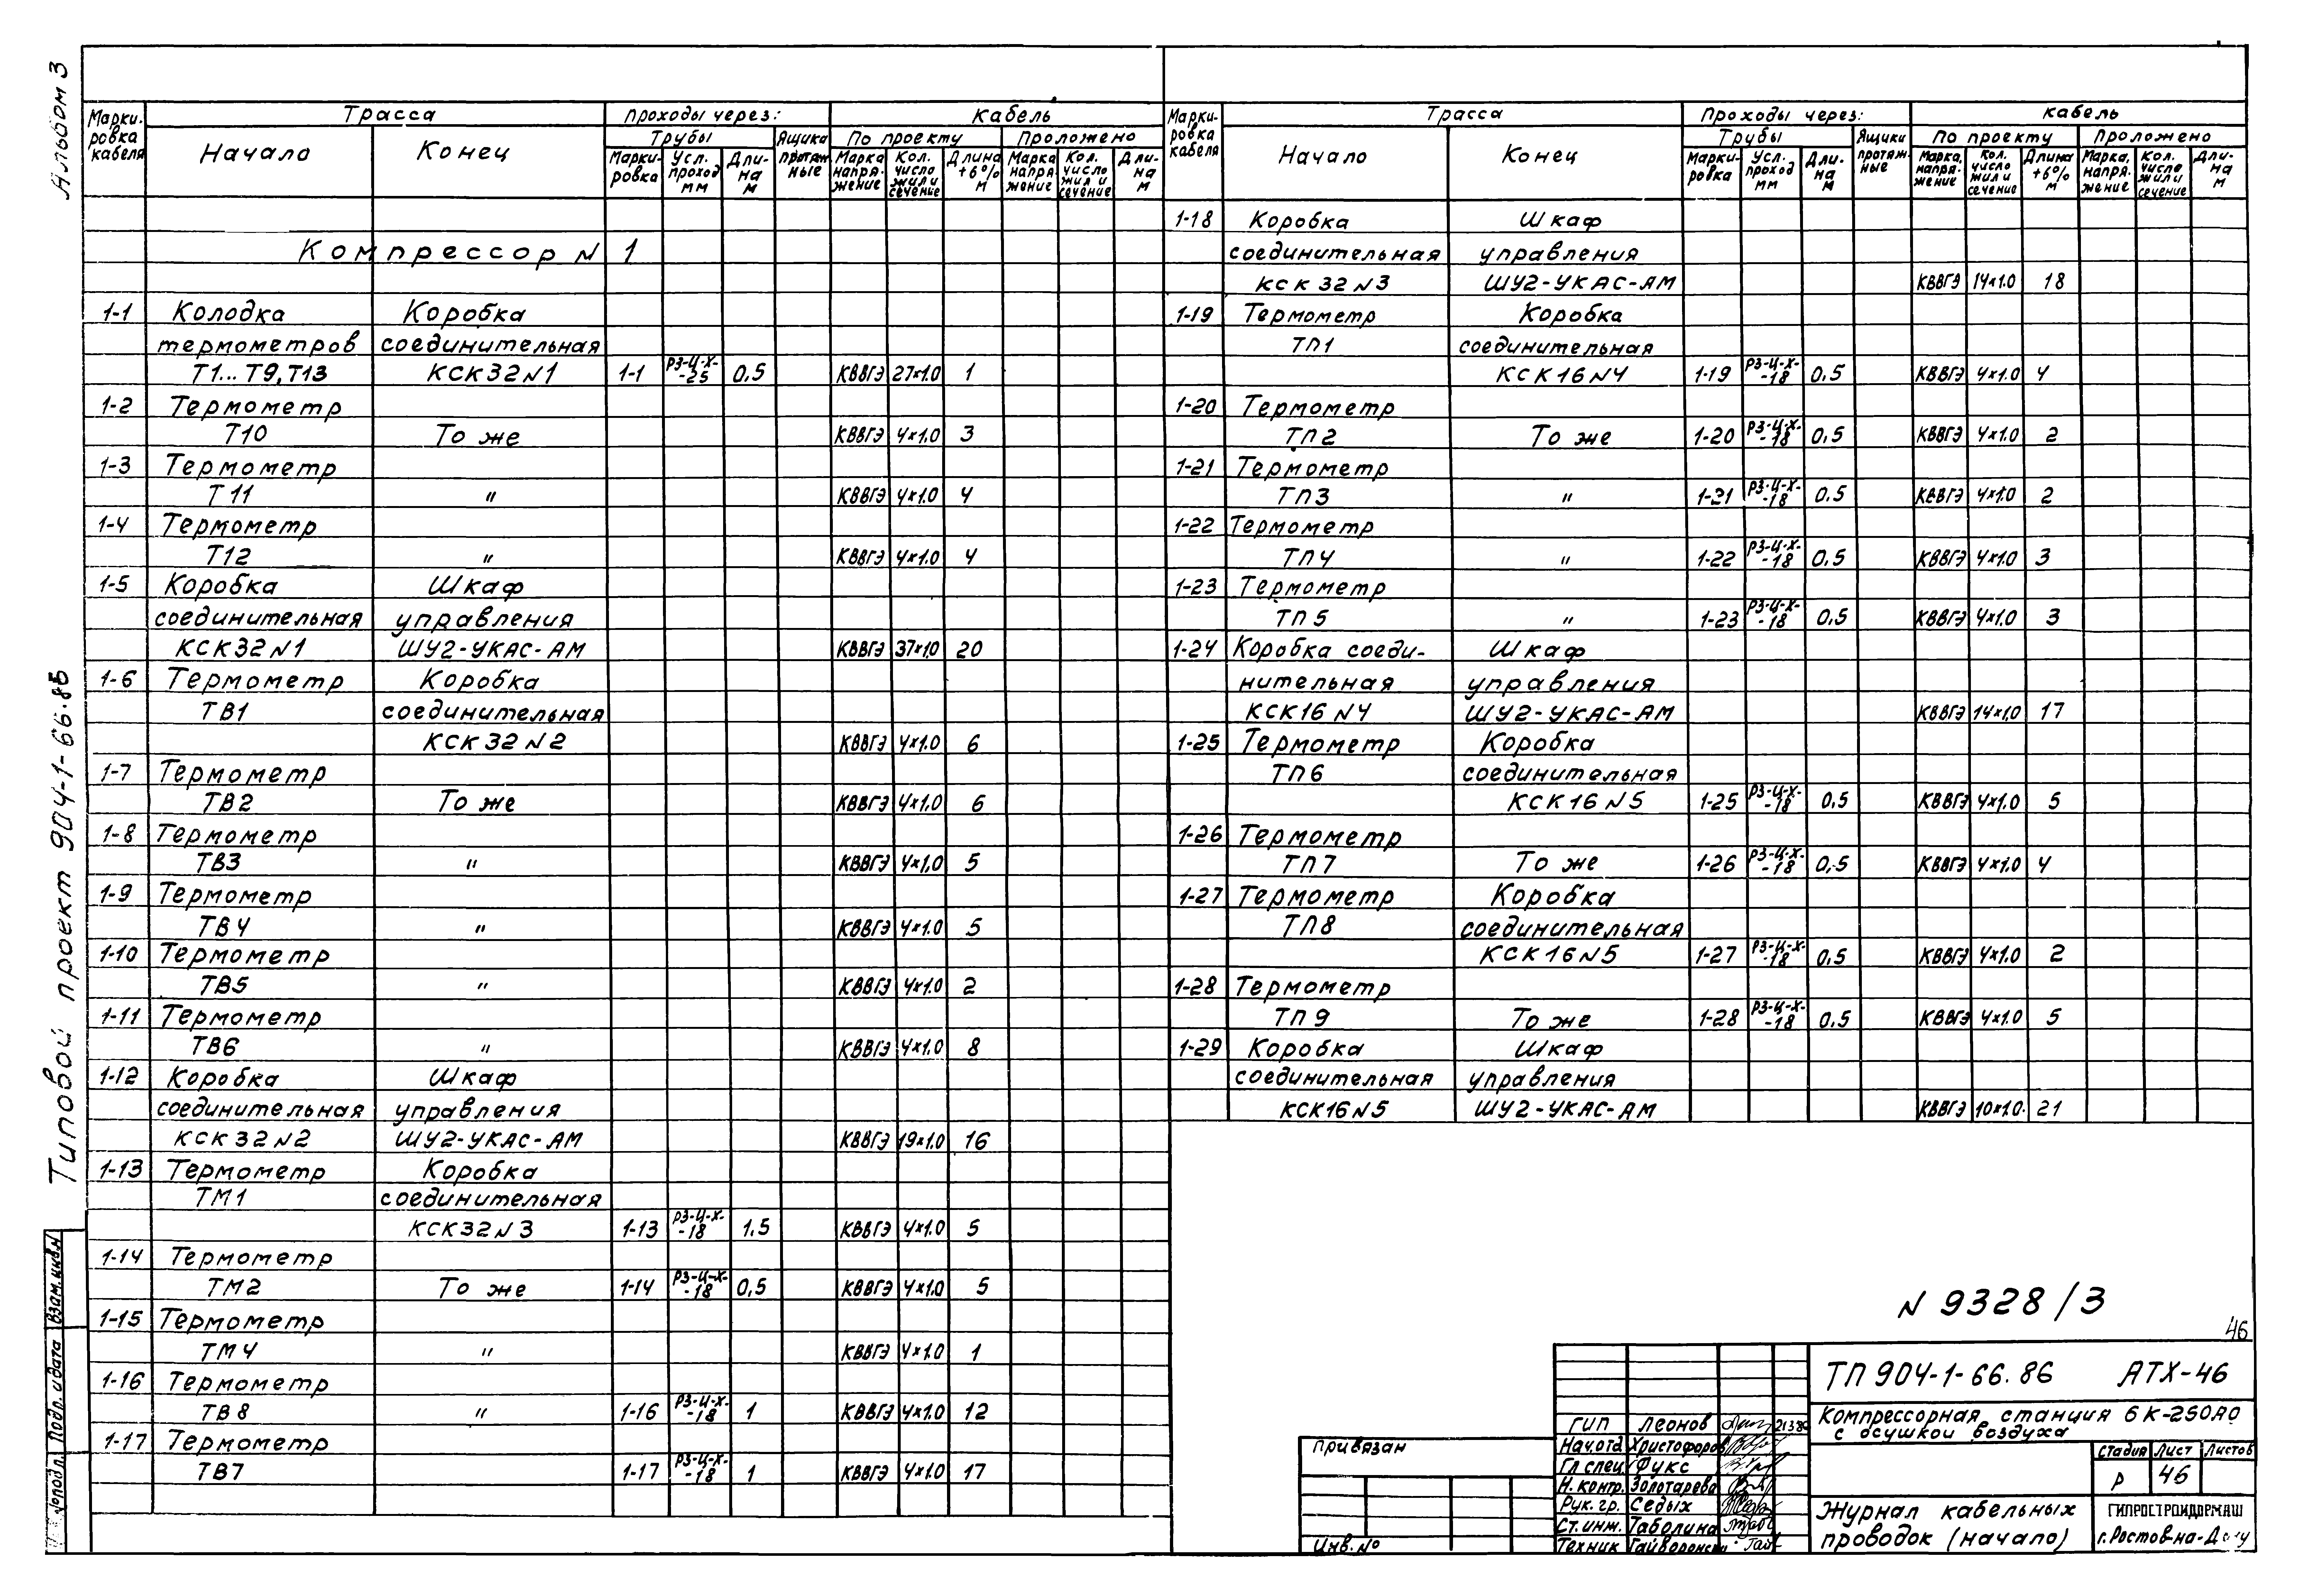 Альбом 3
Типовой проект 904-1-66.86
Взам.инв.N
Подп. и дата
Марки-ровка кабеля | Трасса | Проходы через: | Кабель
Начало | Конец | Трубы | Ящики протяж-ные | По проекту | Проложено
Марки-ровка | Усл. проход мм | Дли-на м | Марка напря-жение | Кол. число жил и сечение | Длина +6% м | Марка напря-жение | Кол. число жил и сечение | Дли-на м
Компрессор N 1
1-1 Колодка Коробка
термометров соединительная
Т1... Т9, Т13 КСК32N1 1-1 РЗ-Ц-Х--25 0,5 КВВГЭ 27×1.0 1
1-2 Термометр
Т10 То же КВВГЭ 4×1.0 3
1-3 Термометр
Т11 " КВВГЭ 4×1.0 4
1-4 Термометр
Т12 " КВВГЭ 4×1.0 4
1-5 Коробка Шкаф
соединительная управления
КСК32N1 ШУ2-УКАС-АМ КВВГЭ 37×1,0 20
1-6 Термометр Коробка
ТВ1 соединительная
КСК32N2 КВВГЭ 4×1.0 6
1-7 Термометр
ТВ2 То же КВВГЭ 4×1.0 6
1-8 Термометр
ТВ3 " КВВГЭ 4×1,0 5
1-9 Термометр
ТВ4 " КВВГЭ 4×1.0 5
1-10 Термометр
ТВ5 " КВВГЭ 4×1.0 2
1-11 Термометр
ТВ6 " КВВГЭ 4×1.0 8
1-12 Коробка Шкаф
соединительная управления
КСК32N2 ШУ2-УКАС-АМ КВВГЭ 19×1.0 16
1-13 Термометр Коробка
ТМ1 соединительная
КСК32N3 1-13 РЗ-Ц-Х--18 1,5 КВВГЭ 4×1.0 5
1-14 Термометр
ТМ2 То же 1-14 РЗ-Ц-Х--18 0,5 КВВГЭ 4×1.0 5
1-15 Термометр
ТМ4 " КВВГЭ 4×1.0 1
1-16 Термометр
ТВ8 " 1-16 РЗ-Ц-Х--18 1 КВВГЭ 4×1.0 12
1-17 Термометр
ТВ7 1-17 РЗ-Ц-Х--18 1 КВВГЭ 4×1.0 17
Марки-ровка кабеля | Трасса | Проходы через: | Кабель
Начало | Конец | Трубы | Ящики протяж-ные | По проекту | Проложено
Марки-ровка | Усл. проход мм | Дли-на м | Марка, напря-жение | Кол. число жил и сечение | Длина +6% м | Марка, напря-жение | Кол. число жил и сечение | Дли-на м
1-18 Коробка Шкаф
соединительная управления
КСК32N3 ШУ2-УКАС-АМ КВВГЭ 14×1.0 18
1-19 Термометр Коробка
ТП1 соединительная
КСК16N4 1-19 РЗ-Ц-Х--18 0,5 КВВГЭ 4×1.0 4
1-20 Термометр
ТП2 То же 1-20 РЗ-Ц-Х--18 0,5 КВВГЭ 4×1.0 2
1-21 Термометр
ТП3 " 1-21 РЗ-Ц-Х--18 0,5 КВВГЭ 4×1.0 2
1-22 Термометр
ТП4 " 1-22 РЗ-Ц-Х--18 0,5 КВВГЭ 4×1.0 3
1-23 Термометр
ТП5 " 1-23 РЗ-Ц-Х--18 0,5 КВВГЭ 4×1.0 3
1-24 Коробка соеди- Шкаф
нительная управления
КСК16N4 ШУ2-УКАС-АМ КВВГЭ 14×1,0 17
1-25 Термометр Коробка
ТП6 соединительная
КСК16N5 1-25 РЗ-Ц-Х--18 0,5 КВВГЭ 4×1.0 5
1-26 Термометр
ТП7 То же 1-26 РЗ-Ц-Х--18 0,5 КВВГЭ 4×1.0 4
1-27 Термометр Коробка
ТП8 соединительная
КСК16N5 1-27 РЗ-Ц-Х--18 0,5 КВВГЭ 4×1.0 2
1-28 Термометр
ТП9 То же 1-28 РЗ-Ц-Х--18 0,5 КВВГЭ 4×1.0 5
1-29 Коробка Шкаф
соединительная управления
КСК16N5 ШУ2-УКАС-АМ КВВГЭ 10×1.0 21
N 9328/3
46
ТП 904-1-66.86 АТХ-46
Компрессорная станция 6К-250А0
с осушкой воздуха
Стадия Лист Листов
Р 46
Журнал кабельных
проводок (начало)
ГИПРОСТРОЙДОРМАШ
г.Ростов-на-Дону
ГИП Леонов
Нач.отд Христофоров
Гл спец. Фукс
Н. контр. Золотарева
Рук. гр. Седых
Ст. инж. Таболина
Техник
Привязан
Инв. No